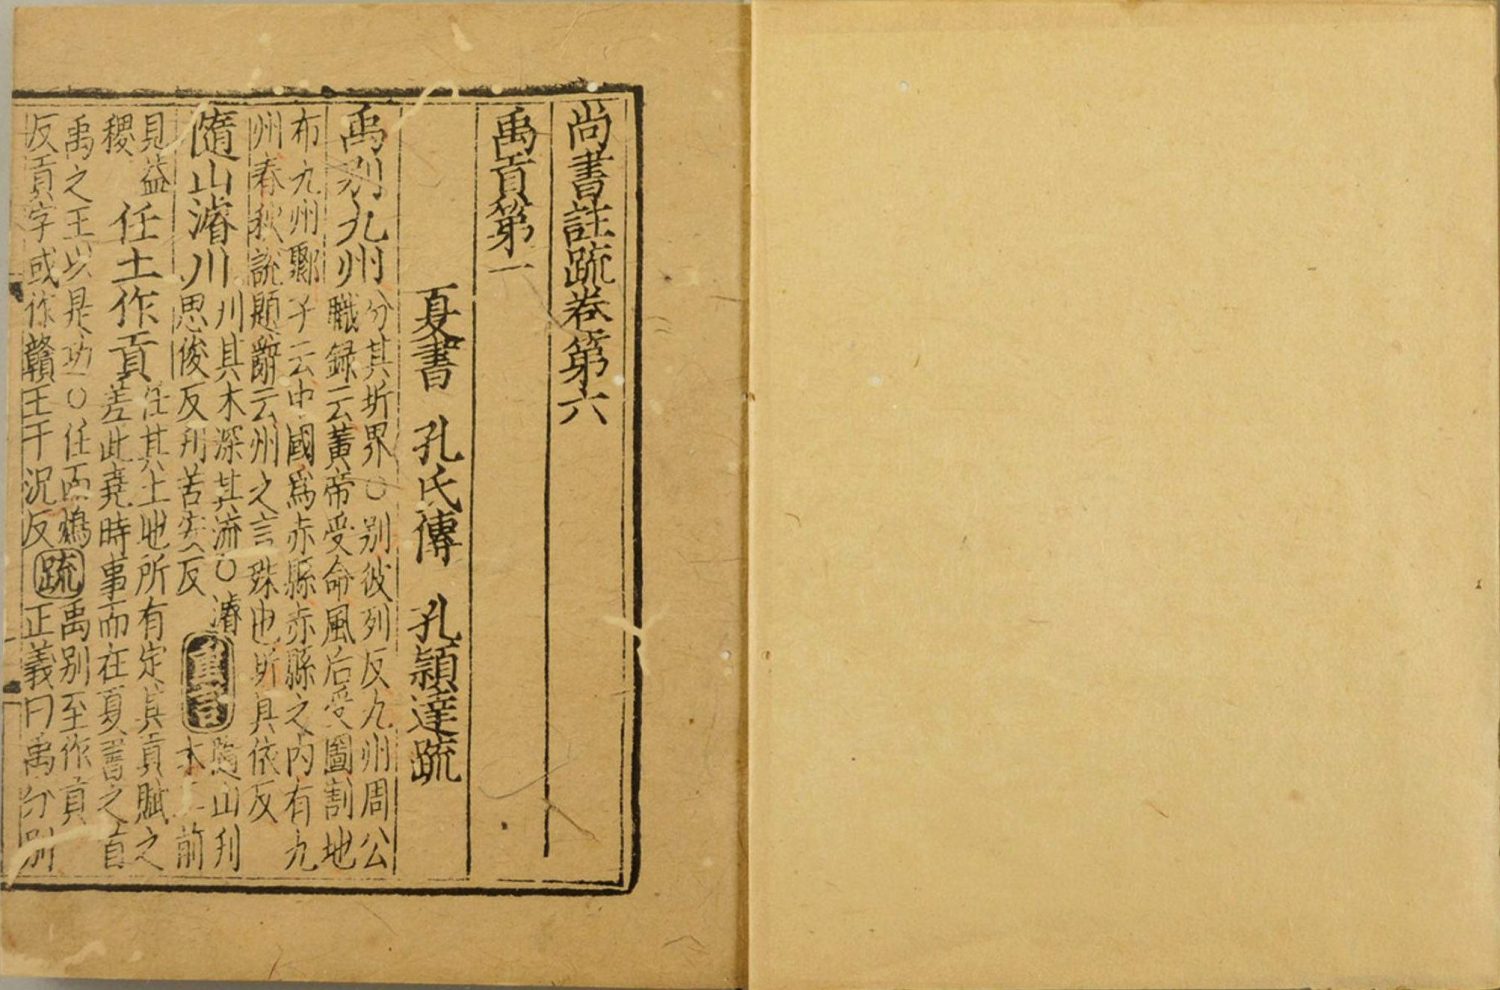 尚書註疏卷第六
禹貢第一
夏書 孔氏傳 孔穎達疏
禹別九州
分其圻界○別彼列反九州周公
職録云黃帝受命風后受圖割地
布九州鄹子云中國爲赤縣赤縣之內有九
州春秋說題辭云州之言殊也圻具依反
隨山濬川
刋其木深其流○濬
思俊反刋苦安反
重言
隨山刋
木二前
見益
稷
任土作貢
任其土地所有定其貢賦之
差此堯時事而在夏書之首
禹之王以是功○任而鴆
反貢字或作贛王于況反
疏
禹別至作貢
正義曰禹分別